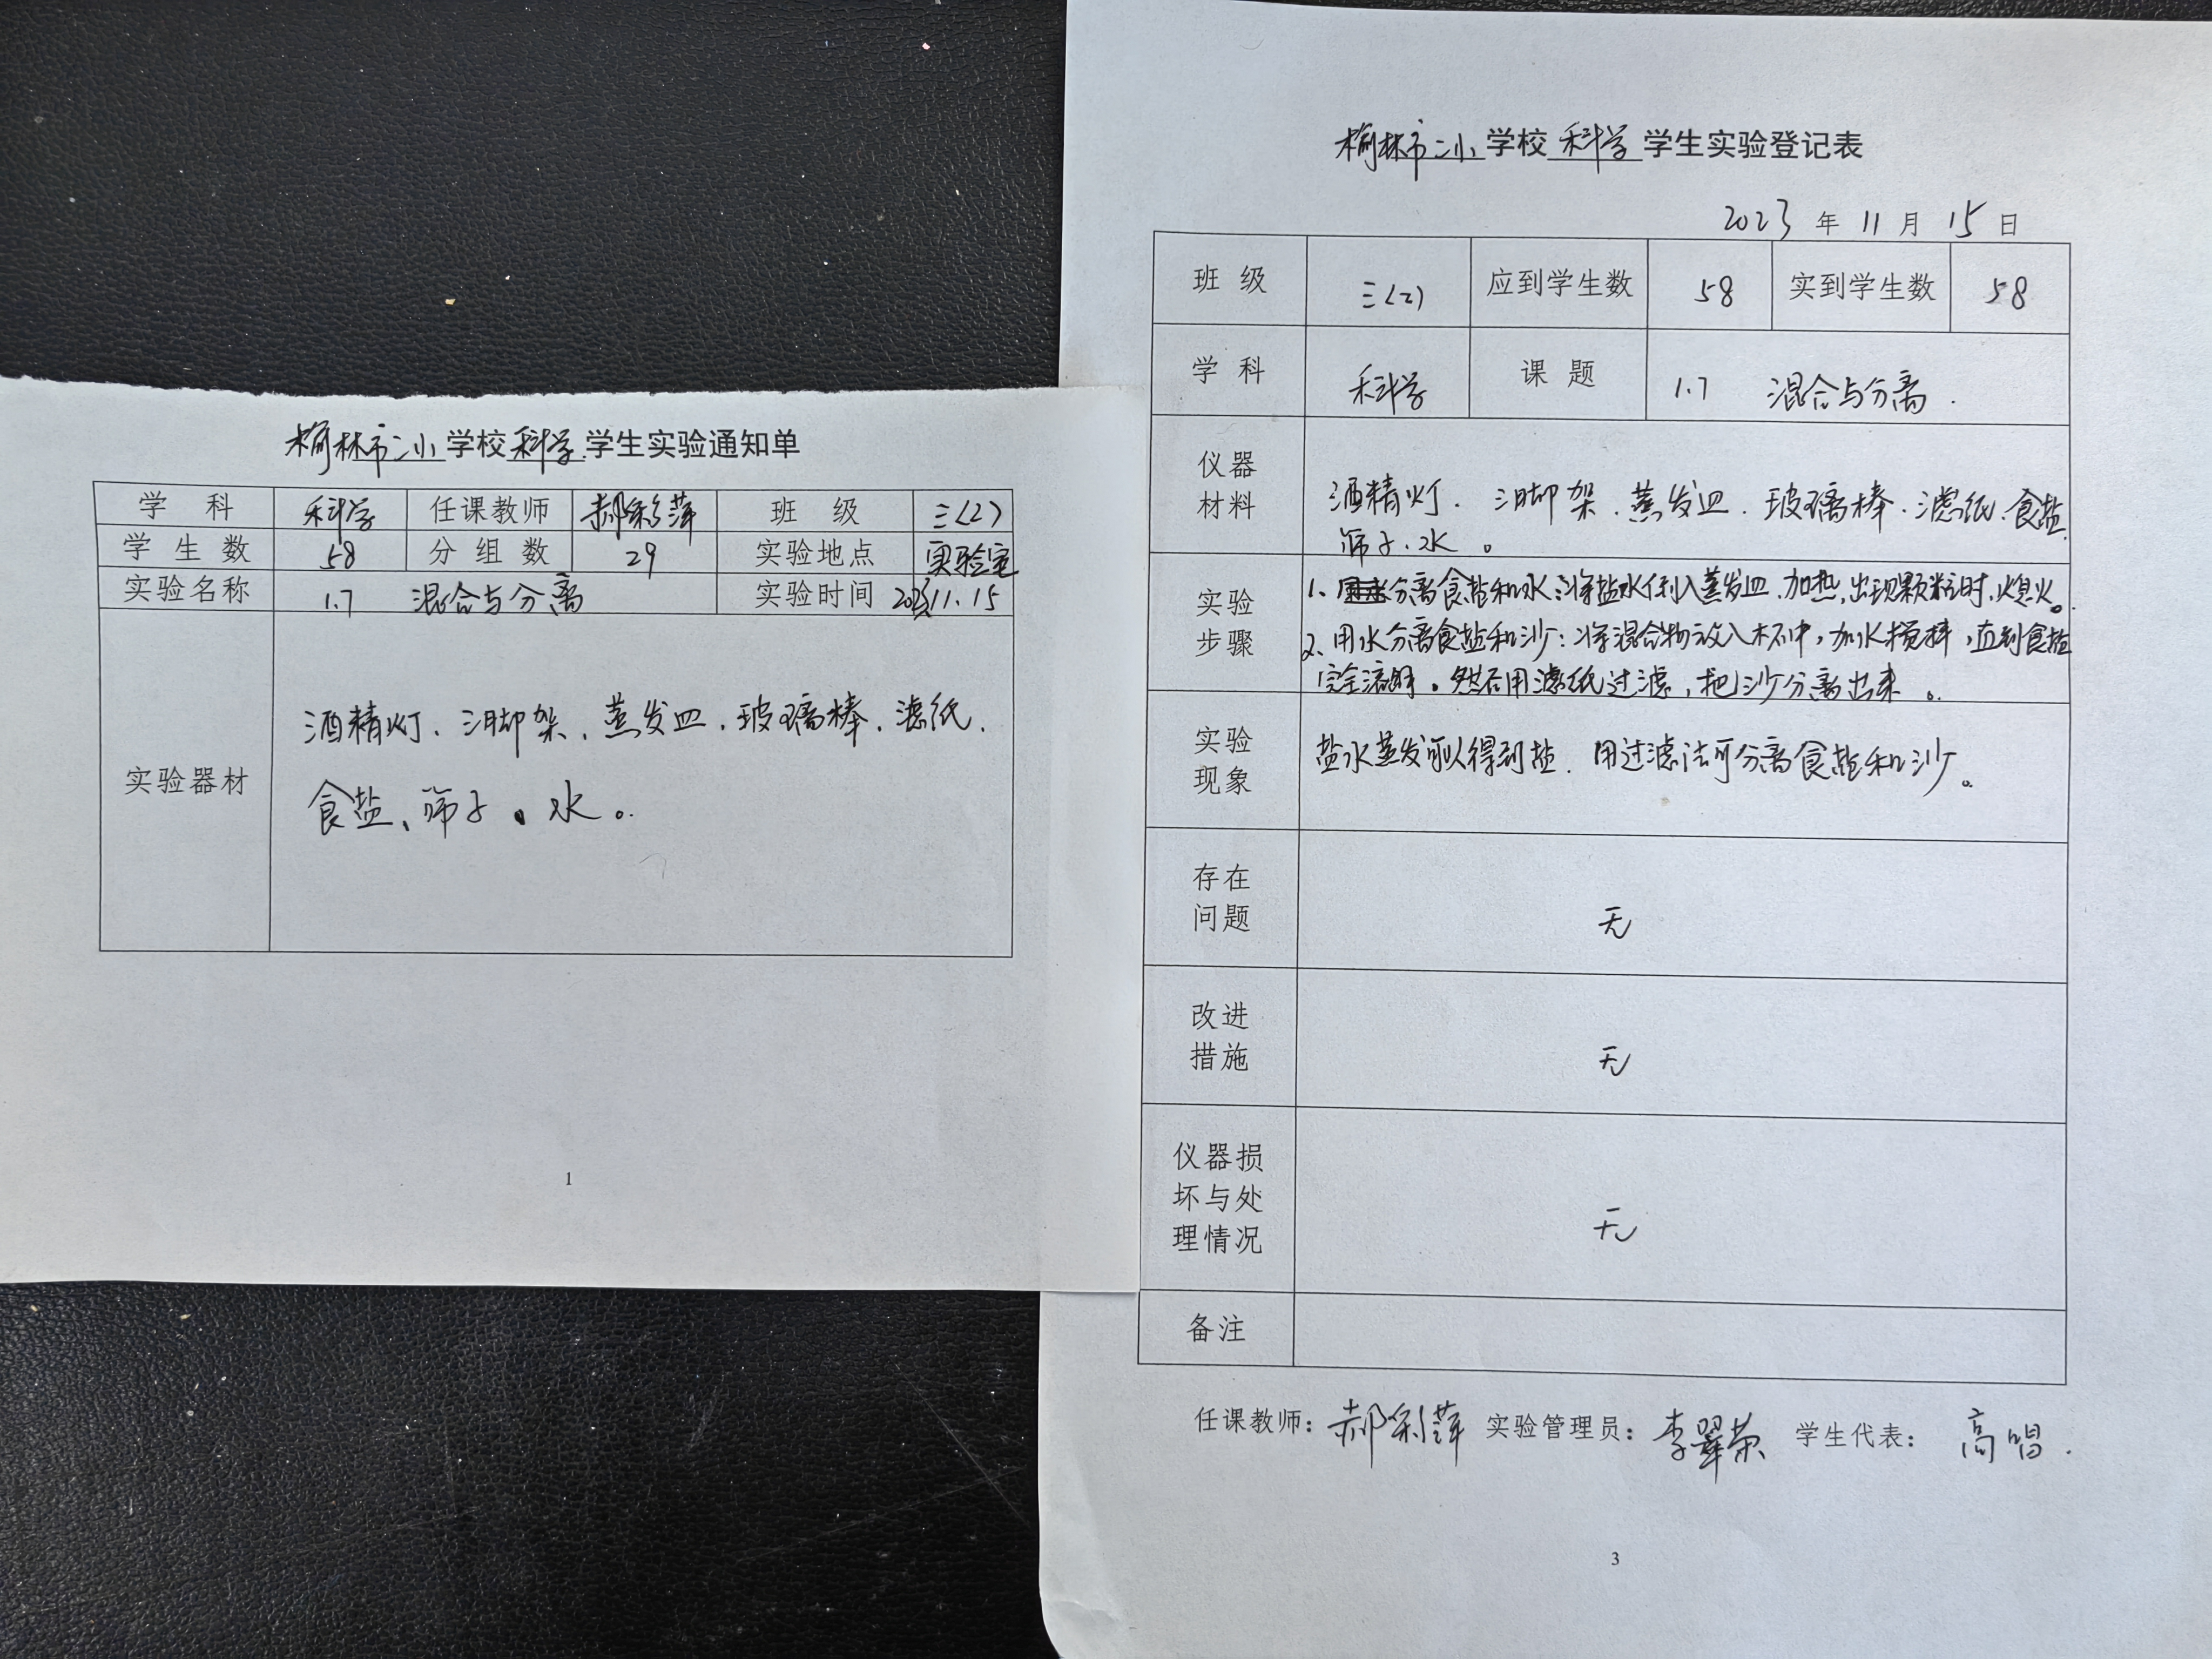 榆林市二小学校科学学生实验通知单
学 科 科学 任课教师 郝彩萍 班 级 三(2)
学 生 数 58 分 组 数 29 实验地点 实验室
实验名称 1.7 混合与分离 实验时间 2023.11.15
实验器材
酒精灯、三脚架、蒸发皿、玻璃棒、滤纸、
食盐、筛子、水。
1
榆林市二小学校科学学生实验登记表
2023年11月15日
班 级 三(2) 应到学生数 58 实到学生数 58
学 科 科学 课 题 1.7 混合与分离.
仪器
材料
酒精灯、三脚架、蒸发皿、玻璃棒、滤纸、食盐、
筛子、水。
实验
步骤
1、分离食盐和水:将盐水倒入蒸发皿,加热,出现颗粒时,熄火。
2、用水分离食盐和沙:将混合物放入杯中,加水搅拌,直到食盐
完全溶解。然后用滤纸过滤,把沙分离出来。
实验
现象
盐水蒸发可以得到盐.用过滤法可分离食盐和沙。
存在
问题
无
改进
措施
无
仪器损
坏与处
理情况
无
备注
任课教师:郝彩萍 实验管理员:李翠荣 学生代表:高唱.
3